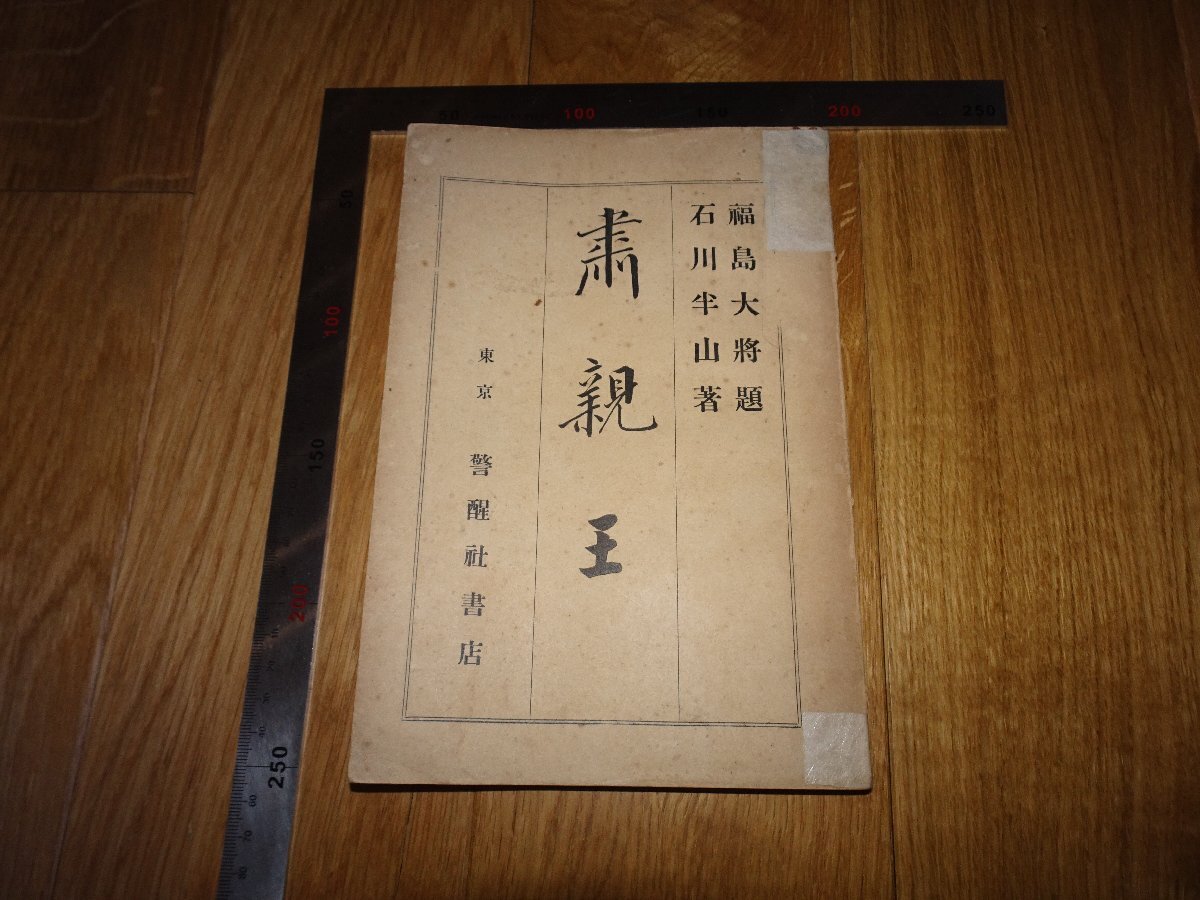 福島大將題
石川半山著
肅親王
東京 警醒社書店
50 100 150 200 250
50
100
150
200
250